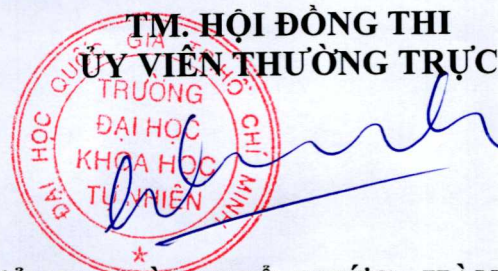 TM. HỘI ĐỒNG THI
ỦY VIÊN THƯỜNG TRỰC
ĐẠI HỌC QUỐC GIA TP HỒ CHÍ MINH
TRƯỜNG
ĐẠI HỌC
KHOA HỌC
TỰ NHIÊN